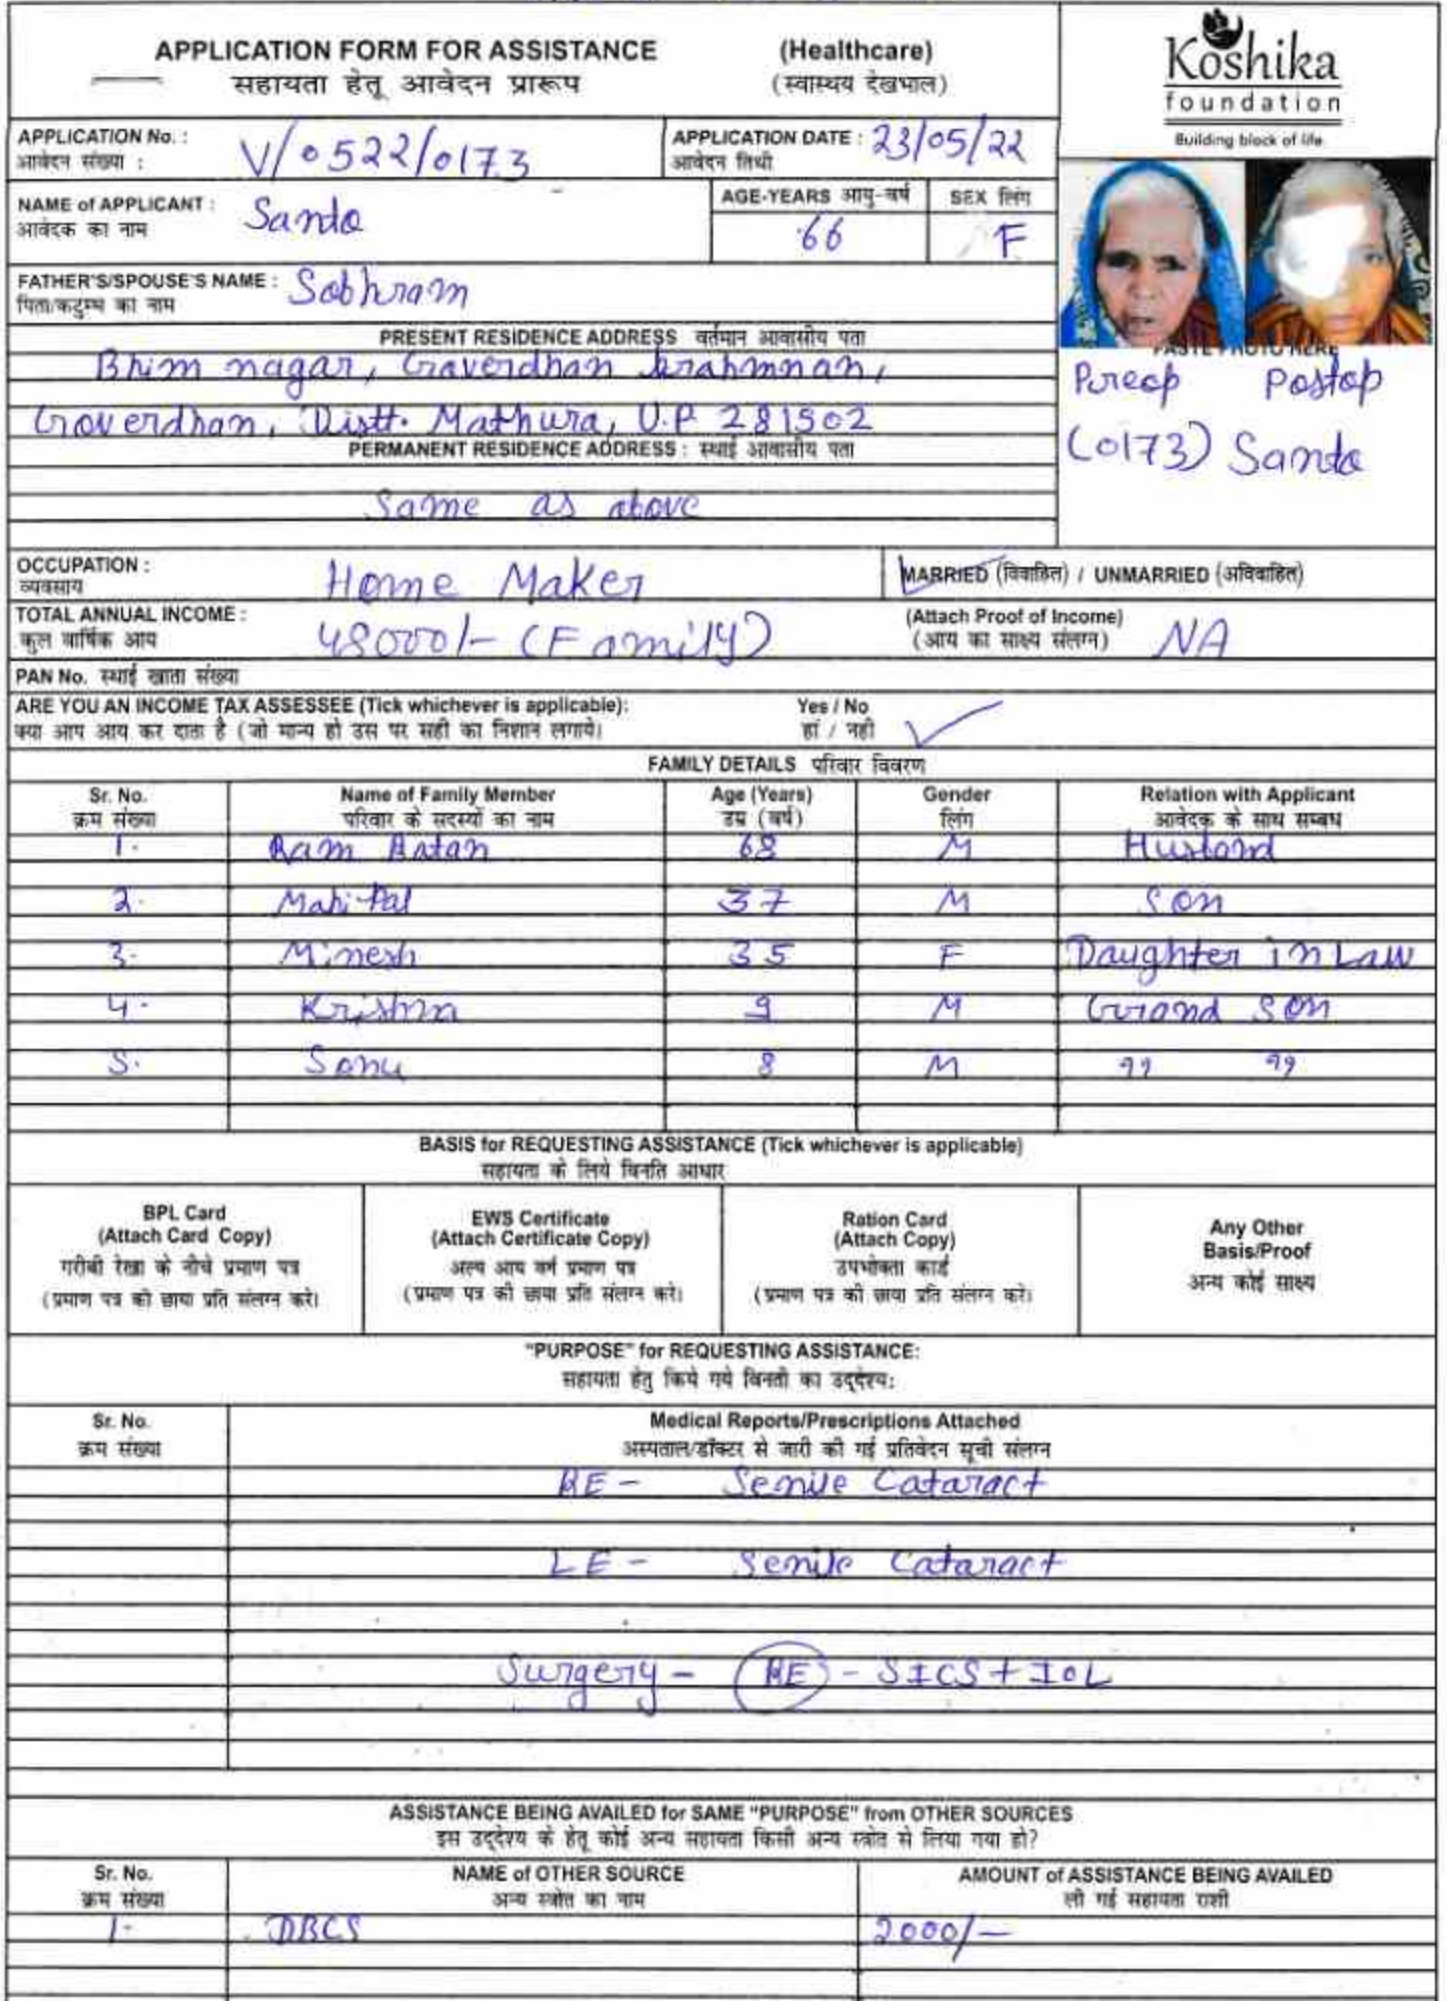 APPLICATION FORM FOR ASSISTANCE (Healthcare)
सहायता हेतू आवेदन प्रारूप (स्वास्थय देखभाल)
Koshika
foundation
Building block of life
APPLICATION No. : V/0522/0173
आवेदन संख्या :
APPLICATION DATE : 23/05/22
आवेदन तिथी
NAME of APPLICANT : Santo
आवेदक का नाम
AGE-YEARS आयु-वर्ष
66
SEX लिंग
F
FATHER'S/SPOUSE'S NAME : Sobhram
पिता/कटुम्ब का नाम
PRESENT RESIDENCE ADDRESS वर्तमान आवासीय पता
Bhim nagar, Goverdhan brahmnan,
Goverdhan, Distt. Mathura, U.P 281502
PERMANENT RESIDENCE ADDRESS : स्थाई आवासीय पता
Same as above
PASTE PHOTO HERE
Preop Postop
(0173) Santo
OCCUPATION : Home Maker
व्यवसाय
MARRIED (विवाहित) / UNMARRIED (अविवाहित)
TOTAL ANNUAL INCOME : 48000/- (Family)
कुल वार्षिक आय
(Attach Proof of Income) NA
(आय का साक्ष्य संलग्न)
PAN No. स्थाई खाता संख्या
ARE YOU AN INCOME TAX ASSESSEE (Tick whichever is applicable): Yes / No
क्या आप आय कर दाता है (जो मान्य हो उस पर सही का निशान लगाये। हां / नही
FAMILY DETAILS परिवार विवरण
Sr. No. Name of Family Member Age (Years) Gender Relation with Applicant
क्रम संख्या परिवार के सदस्यों का नाम उम्र (वर्ष) लिंग आवेदक के साथ सम्बध
1. Ram Ratan 68 M Husband
2. Mahi Pal 37 M Son
3. Minesh 35 F Daughter in Law
4. Krishna 9 M Grand Son
5. Sonu 8 M " "
BASIS for REQUESTING ASSISTANCE (Tick whichever is applicable)
सहायता के लिये विनति आधार
BPL Card
(Attach Card Copy)
गरीबी रेखा के नीचे प्रमाण पत्र
(प्रमाण पत्र की छाया प्रति संलग्न करे।
EWS Certificate
(Attach Certificate Copy)
अल्प आय वर्ग प्रमाण पत्र
(प्रमाण पत्र की छाया प्रति संलग्न करे।
Ration Card
(Attach Copy)
उपभोक्ता कार्ड
(प्रमाण पत्र की छाया प्रति संलग्न करे।
Any Other
Basis/Proof
अन्य कोई साक्ष्य
"PURPOSE" for REQUESTING ASSISTANCE:
सहायता हेतु किये गये विनती का उद्देश्य:
Sr. No. Medical Reports/Prescriptions Attached
क्रम संख्या अस्पताल/डॉक्टर से जारी की गई प्रतिवेदन सूची संलग्न
RE - Senile Cataract
LE - Senile Cataract
Surgery - RE - SICS + IOL
ASSISTANCE BEING AVAILED for SAME "PURPOSE" from OTHER SOURCES
इस उद्देश्य के हेतू कोई अन्य सहायता किसी अन्य स्त्रोत से लिया गया हो?
Sr. No. NAME of OTHER SOURCE AMOUNT of ASSISTANCE BEING AVAILED
क्रम संख्या अन्य स्त्रोत का नाम ली गई सहायता राशी
1- DBCS 2000/-